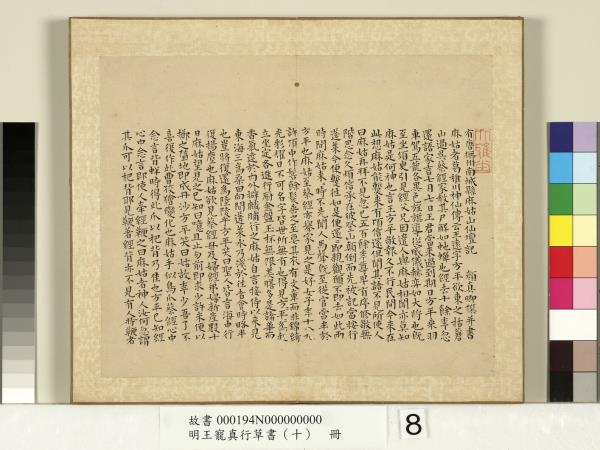 有唐撫州南城縣麻姑山仙壇記 顏真卿撰并書
麻姑者葛稚川神仙傳云王遠字方平欲東之括蒼
山過吳蔡經家教其尸解如蛇蟬也經去十餘年忽
還語家言七月七日王君當來過到期日方平乘羽
車駕五龍各異色旌旗導從威儀赫弈如大將也既
至坐須臾引見經父兄因遣人與麻姑相聞亦莫知
麻姑是何神也言王方平敬報久不行民間今來在
此想麻姑能暫來有頃信還但聞其語不見所使人
曰麻姑再拜不見忽已五百餘年尊卑有序修敬無
階思念久煩信承在彼登山顛倒而先被記當按行
蓬萊今便暫往如是便還還即親觀願不即去如此兩
時間麻姑來來時不先聞人馬聲既至從官當半於
方平也麻姑至蔡經亦舉家見之是好女子年十八九
許頂中作髻餘髮垂之至要其衣有文章而非錦綺
光彩耀日不可名字皆世所無有也得見方平方平為起
立坐定各進行廚金盤玉杯無限美膳多是諸華而
香氣達於內外擗麟脯行之麻姑自言接待以來見
東海三為桑田向間蓬萊水乃淺於往者會時略半
也豈將復還為陸陵乎方平笑曰聖人皆言海中行
復揚塵也麻姑欲見蔡經母及經弟婦新產數十
日麻姑望見之已知曰噫且止勿前即求少許米便以
擲之墮地即成丹沙方平笑曰姑故年少吾了不
喜復作此曹狡獪變化也麻姑手似鳥爪蔡經心中
念言背蛘時得此爪以杷背乃佳也方平已知經
心中念言即使人牽經鞭之曰麻姑者神人汝何忽謂
其爪可以杷背耶見鞭著經背亦不見有人持鞭者
故書 000194N000000000
明王寵真行草書（十） 冊
8